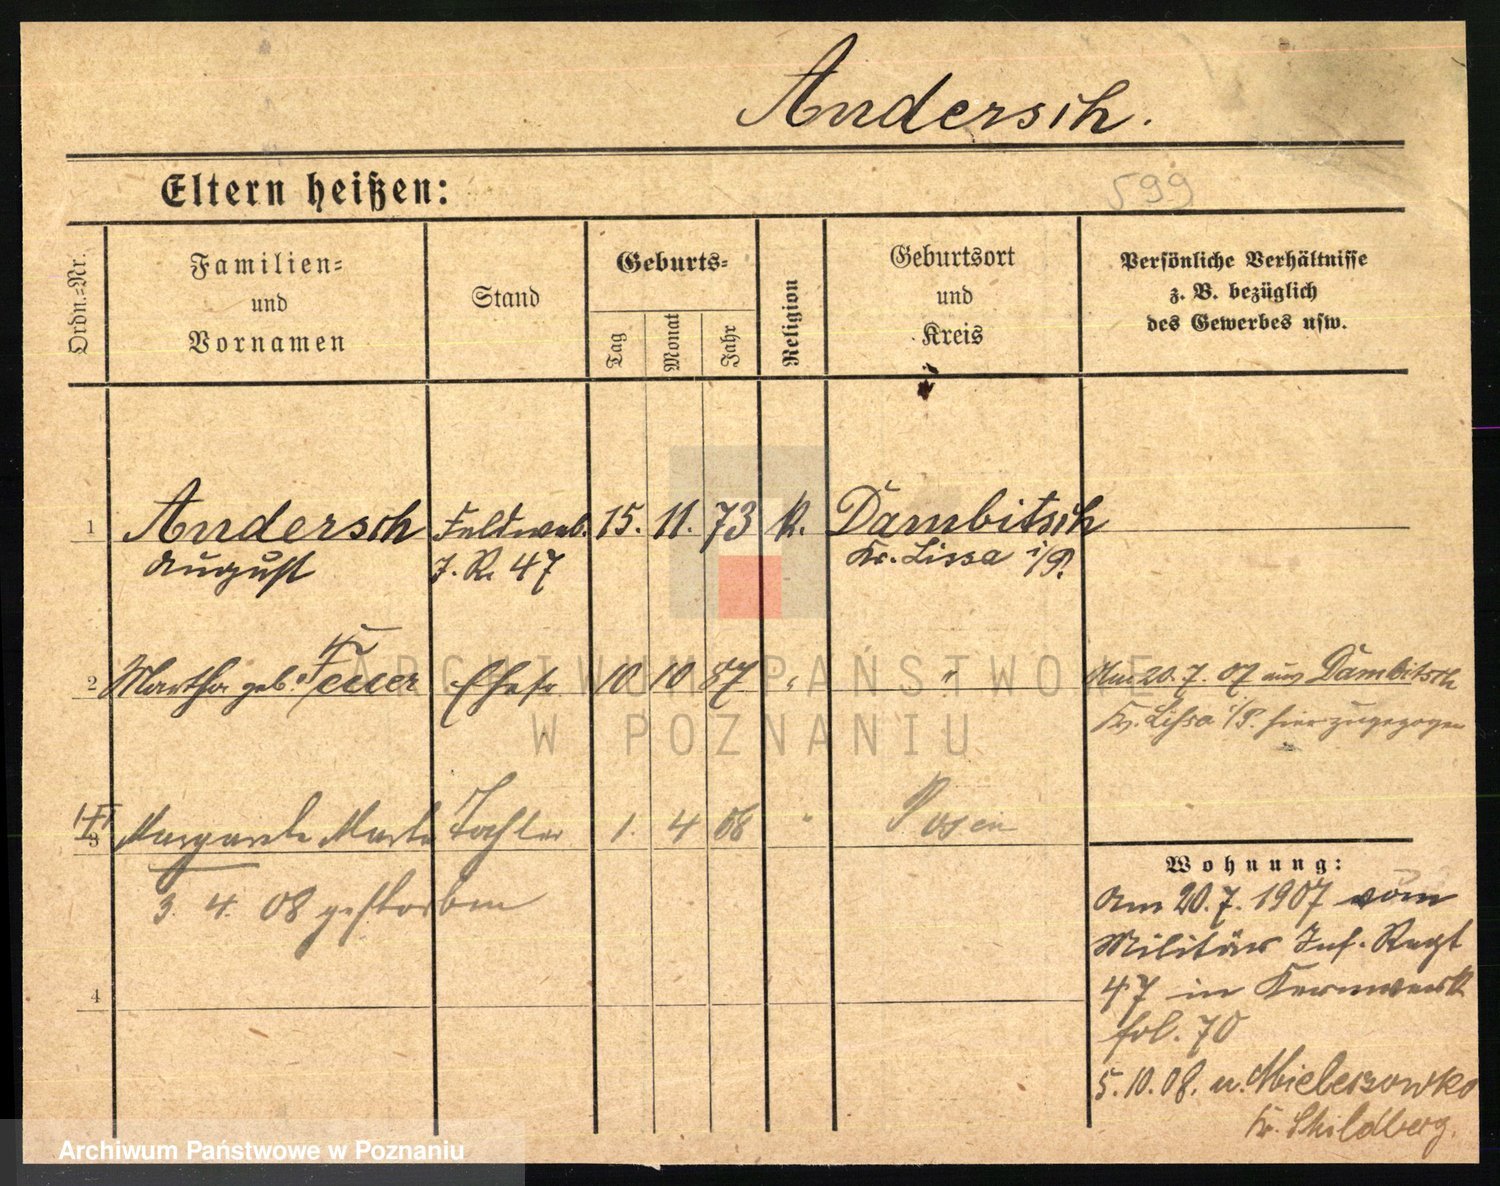 Andersch.
Eltern heißen:
599
Ordn.=Nr.
Familien=
und
Vornamen
Stand
Geburts=
Tag
Monat
Jahr
Religion
Geburtsort
und
Kreis
Persönliche Verhältnisse
z. B. bezüglich
des Gewerbes usw.
1 Andersch Feldweb. 15. 11. 73 k. Dambitsch
August J. R. 47 Kr. Lissa i/P.
2 Martha geb. Ehefr. 10 10 87 " "
Am 20.7.07 aus Dambitsch
Kr. Lissa i/P. hier zugezogen
3 Margarete Marta Tochter 1. 4 08 " Posen
3. 4. 08 gestorben
4
Wohnung:
Am 20.7.1907 vom
Militär Inf. Regt
47 in Kernwerk
fol. 70
5.10.08. n. Mielcszowko
Kr. Schildberg.
ARCHIWUM PAŃSTWOWE
W POZNANIU
Archiwum Państwowe w Poznaniu